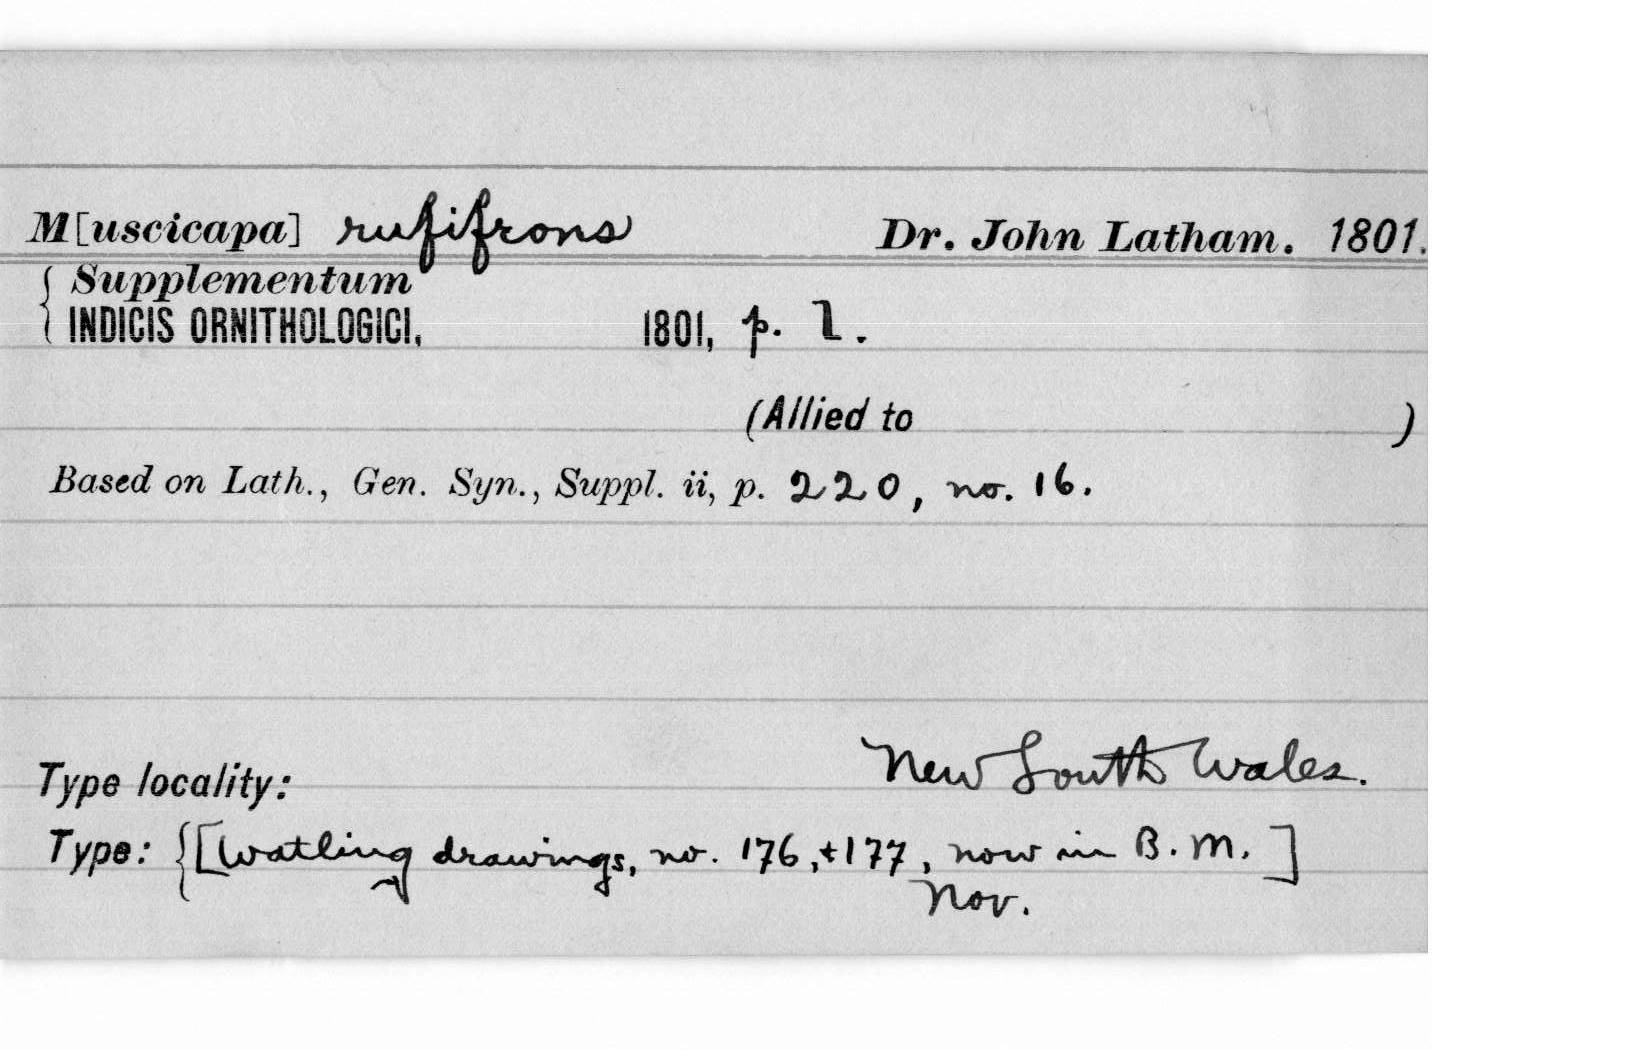 M[uscicapa] rufifrons Dr. John Latham. 1801.
Supplementum
INDICIS ORNITHOLOGICI, 1801, p. l.
(Allied to )
Based on Lath., Gen. Syn., Suppl. ii, p. 220, no. 16.
Type locality: New South Wales.
Type: {[Watling drawings, no. 176, + 177, now in B. M.]
Nov.